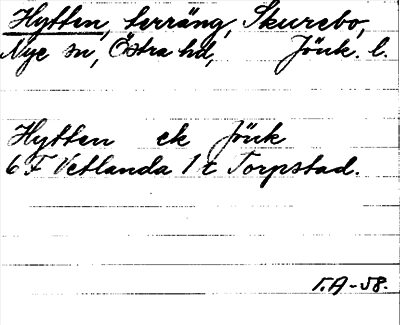 Hytten, terräng, Skurebo,
Nye sn, Östra hd, Jönk. l.
Hytten ek Jönk
6 F Vetlanda 1 t Torpstad.
T.A-58.